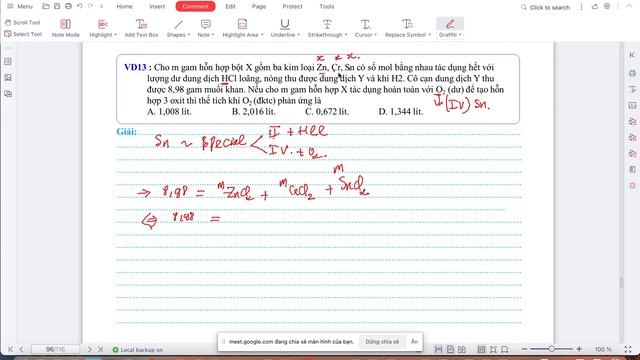 Menu
Home
Insert
Comment
Edit
Page
Protect
Tools
Click to search
Scroll Tool
Screenshot
SelectTool
Highlight
Shapes
Note
Text
Underline
Strikethrough
Cursor
Replace Symbol
Graffiti
x x x.
VD13 : Cho m gam hỗn hợp bột X gồm ba kim loại Zn, Cr, Sn có số mol bằng nhau tác dụng hết với
lượng dư dung dịch HCl loãng, nóng thu được dung dịch Y và khí H2. Cô cạn dung dịch Y thu
được 8,98 gam muối khan. Nếu cho m gam hỗn hợp X tác dụng hoàn toàn với O2 (dư) để tạo hỗn
hợp 3 oxit thì thể tích khí O2 (đktc) phản ứng là
(IV) Sn.
A. 1,008 lít.
B. 2,016 lít.
C. 0,672 lít.
D. 1,344 lít.
Giải:
II + HCl
Sn ~ special <
IV. + O2
→ 8,98 = mZnCl2 + mCrCl2 + mSnCl2
⇔ 8,98 =
96/116
Local backup on
meet.google.com đang chia sẻ màn hình của bạn.
Dừng chia sẻ
Ẩn
100%